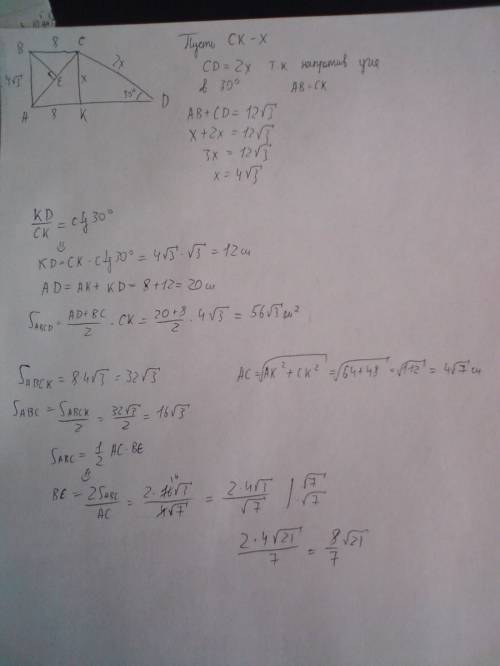 B 8 C
4√3
2x
E
x
30°
A 8 K D
Пусть CK - x
CD = 2x т.к напротив угла
в 30° AB = CK
AB + CD = 12√3
x + 2x = 12√3
3x = 12√3
x = 4√3
KD/CK = ctg 30°
⇓
KD = CK · ctg 30° = 4√3 · √3 = 12 см
AD = AK + KD = 8 + 12 = 20 см
S_ABCD = (AD + BC)/2 · CK = (20 + 8)/2 · 4√3 = 56√3 см²
S_ABCK = 8 4√3 = 32√3
AC = √(AK² + CK²) = √(64 + 48) = √112 = 4√7 см
S_ABC = S_ABCK/2 = 32√3/2 = 16√3
S_ABC = 1/2 AC · BE
⇓
BE = 2S_ABC/AC = 2 · 16√3/4√7 = 2 · 4√3/√7 | √7 · √7
2 · 4√21/7 = 8/7 √21